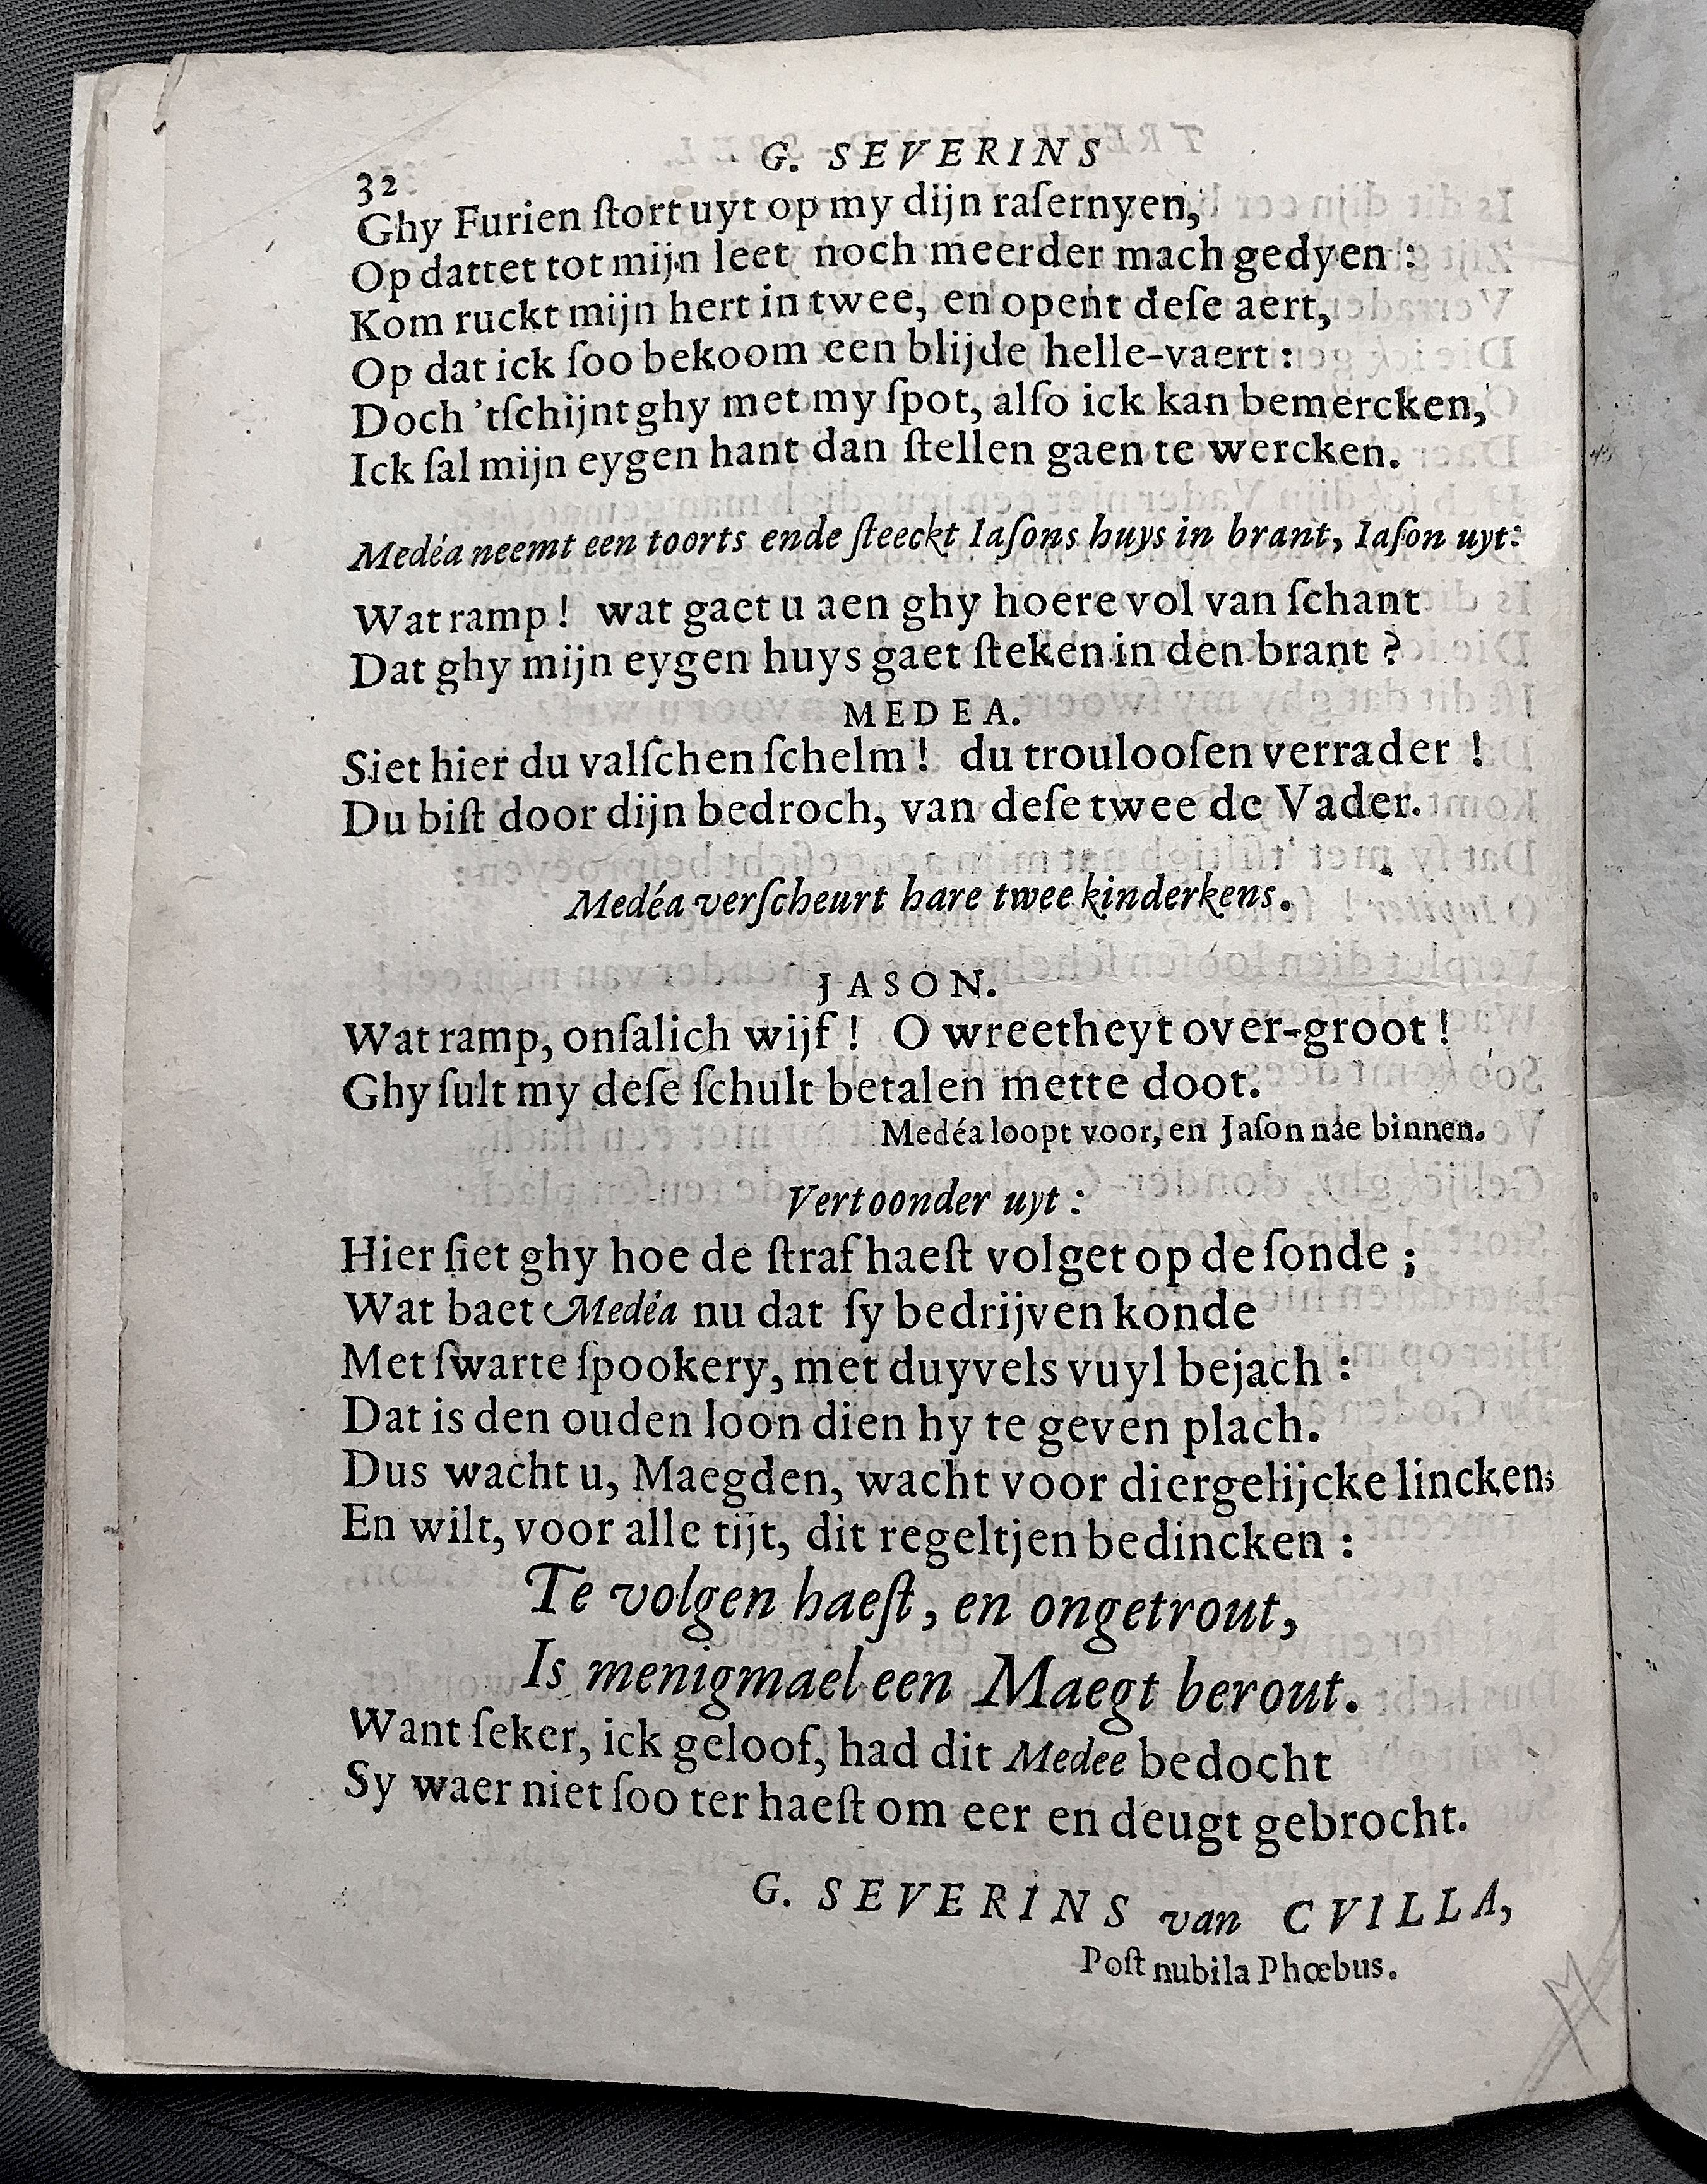 G. SEVERINS
32
Ghy Furien ſtort uyt op my dijn raſernyen,
Op dattet tot mijn leet noch meerder mach gedyen :
Kom ruckt mijn hert in twee, en opent deſe aert,
Op dat ick ſoo bekoom een blijde helle-vaert :
Doch 'tſchijnt ghy met my ſpot, alſo ick kan bemercken,
Ick ſal mijn eygen hant dan ſtellen gaen te wercken.
Medéa neemt een toorts ende ſteeckt Iaſons huys in brant, Iaſon uyt:
Wat ramp ! wat gaet u aen ghy hoere vol van ſchant
Dat ghy mijn eygen huys gaet ſteken in den brant ?
MEDEA.
Siet hier du valſchen ſchelm ! du troulooſen verrader !
Du biſt door dijn bedroch, van deſe twee de Vader.
Medéa verſcheurt hare twee kinderkens.
JASON.
Wat ramp, onſalich wijf ! O wreetheyt over-groot !
Ghy ſult my deſe ſchult betalen mette doot.
Medéa loopt voor, en Jaſon nae binnen.
Vertoonder uyt :
Hier ſiet ghy hoe de ſtraf haeſt volget op de ſonde ;
Wat baet Medéa nu dat ſy bedrijven konde
Met ſwarte ſpookery, met duyvels vuyl bejach :
Dat is den ouden loon dien hy te geven plach.
Dus wacht u, Maegden, wacht voor diergelijcke lincken;
En wilt, voor alle tijt, dit regeltjen bedincken :
Te volgen haeſt, en ongetrout,
Is menigmael een Maegt berout.
Want ſeker, ick geloof, had dit Medee bedocht
Sy waer niet ſoo ter haeſt om eer en deugt gebrocht.
G. SEVERINS van CVILLA,
Poſt nubila Phœbus.